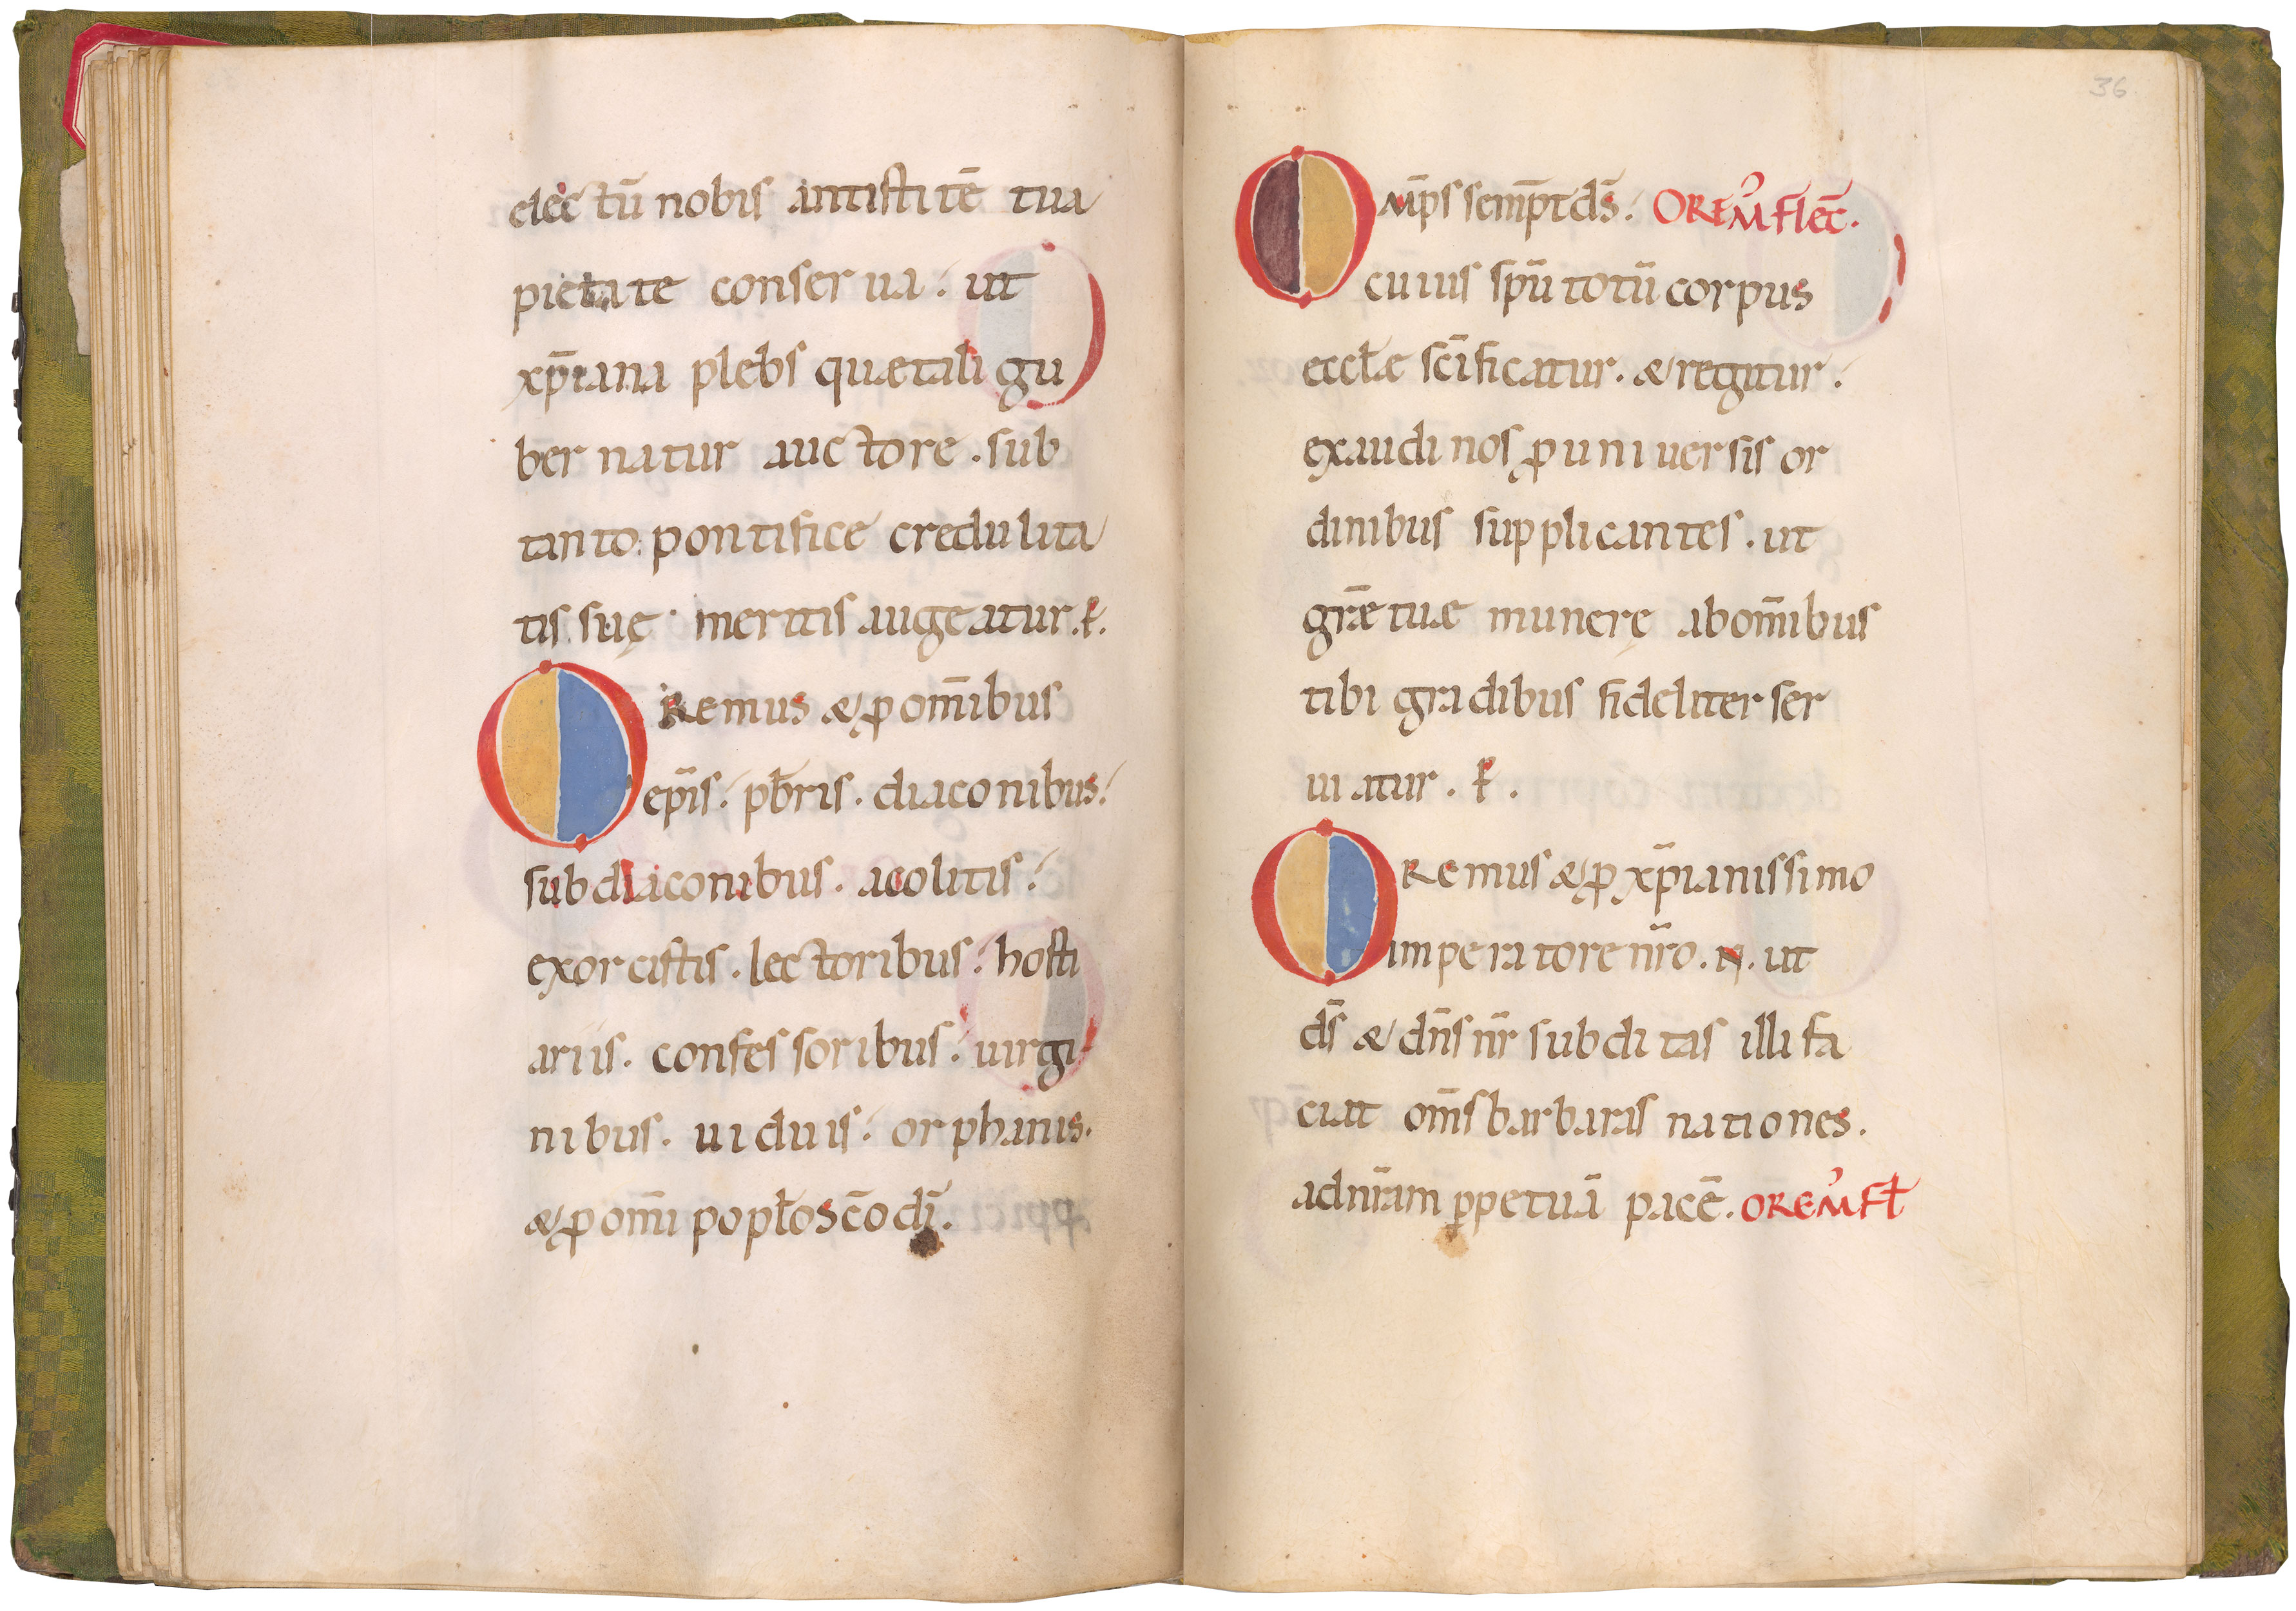 elec tū nobis antistitē tua
pietate conserua. ut
xp̄iana plebs quaetali gu
bernatur auctore. sub
tanto pontifice credulita
tis suę meritis augeatur. ꝑ.
OREmus & ꝓ om̄ibus
ep̄is. pb̄ris. diaconibus.
subdiaconibus. acolitis.
exorcistis. lectoribus. hosti
ariis. confessoribus. uirgi
nibus. uiduis. orphanis.
& ꝓ om̄i popł̄o sc̄o dī.
36
Om̄ps semp̄t ds̄. OREM̓ flec̄.
cuius spū totū corpus
eccł̄ae sc̄ificatur. & regitur.
exaudi nos ꝓ uniuersis or
dinibus supplicantes. ut
gr̄ae tuae munerę ab om̄ibus
tibi gradibus fideliter ser
uiatur. ꝑ.
OREmus & ꝓ xp̄ianissimo
imperatore nr̄o. N. ut
ds̄ & dn̄s nr̄ subditas illi fa
ciat om̄s barbaras nationes.
ad nr̄am ꝑpetuā pacē. OREM̓ FŁ